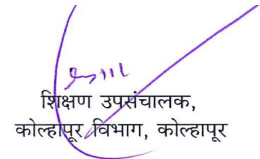 शिक्षण उपसंचालक,
कोल्हापूर विभाग, कोल्हापूर